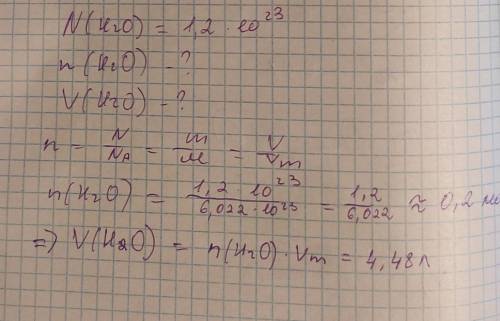 N(H2O) = 1,2 · 10^23
n(H2O) - ?
V(H2O) - ?
n = N/NA = m/M = V/Vm
n(H2O) = 1,2 · 10^23 / 6,022 · 10^23 = 1,2/6,022 ≈ 0,2
=> V(H2O) = n(H2O) · Vm = 4,48 л